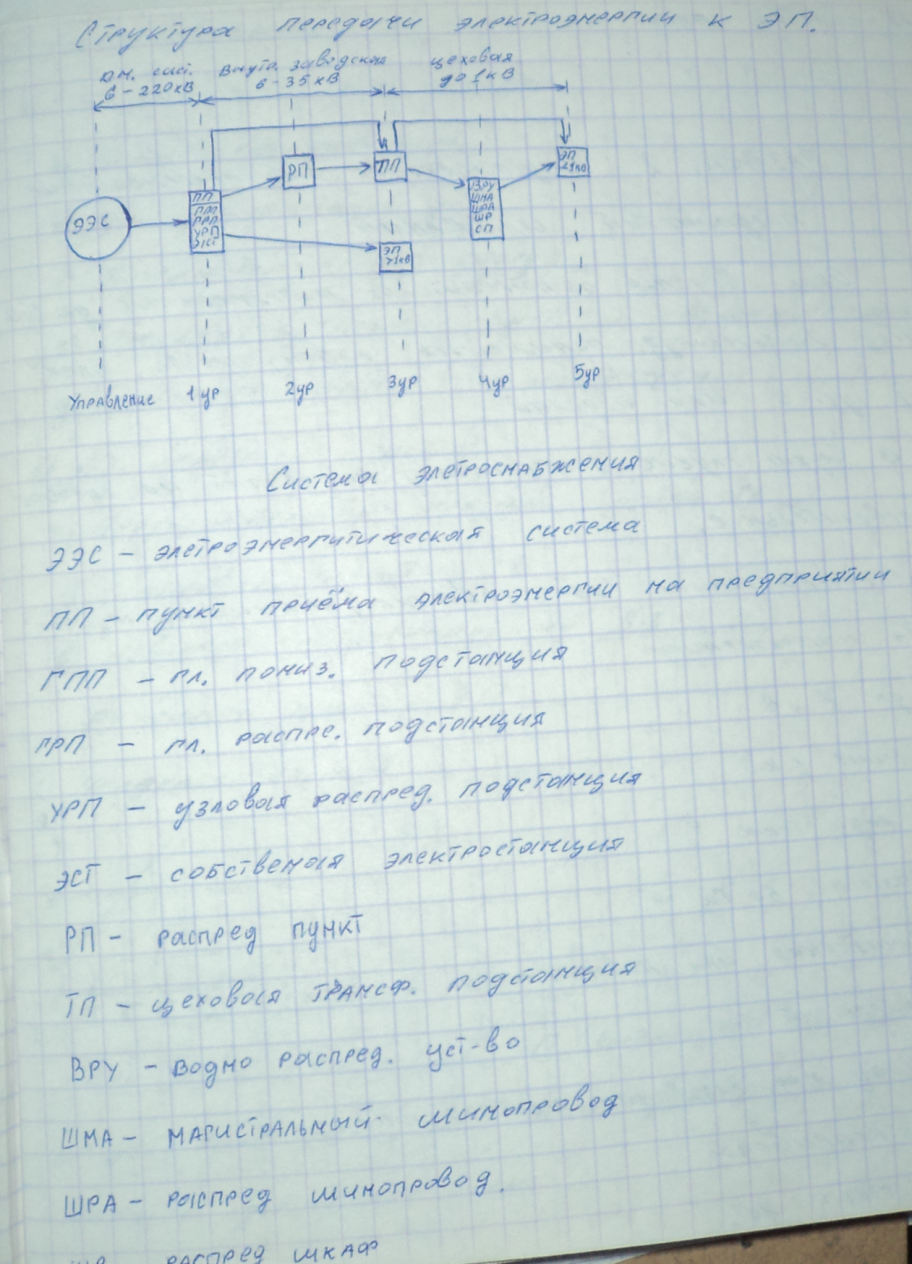 Структура передачи электроэнергии к ЭП.
Внутр. заводская
цеховая
6-220кВ
6-35кВ
до 1кВ
ЭЭС
ПП
ГПП
ГРП
УРП
ЭСТ
РП
ЭП
>1кВ
ВРУ
ШМА
ШРА
ШР
СП
ЭП
Управление 1ур 2ур 3ур 4ур 5ур
Система элетроснабжения
ЭЭС - элетроэнергитическая система
ПП - пункт приёма электроэнергии на предприятии
ГПП - гл. пониз. подстанция
ГРП - гл. распре. подстанция
УРП - узловая распред. подстанция
ЭСТ - собственая электростанция
РП - распред пункт
ТП - цеховая трансф. подстанция
ВРУ - водно распред. уст-во
ШМА - магистральный шинопровод
ШРА - распред шинопровод.
распред шкаф